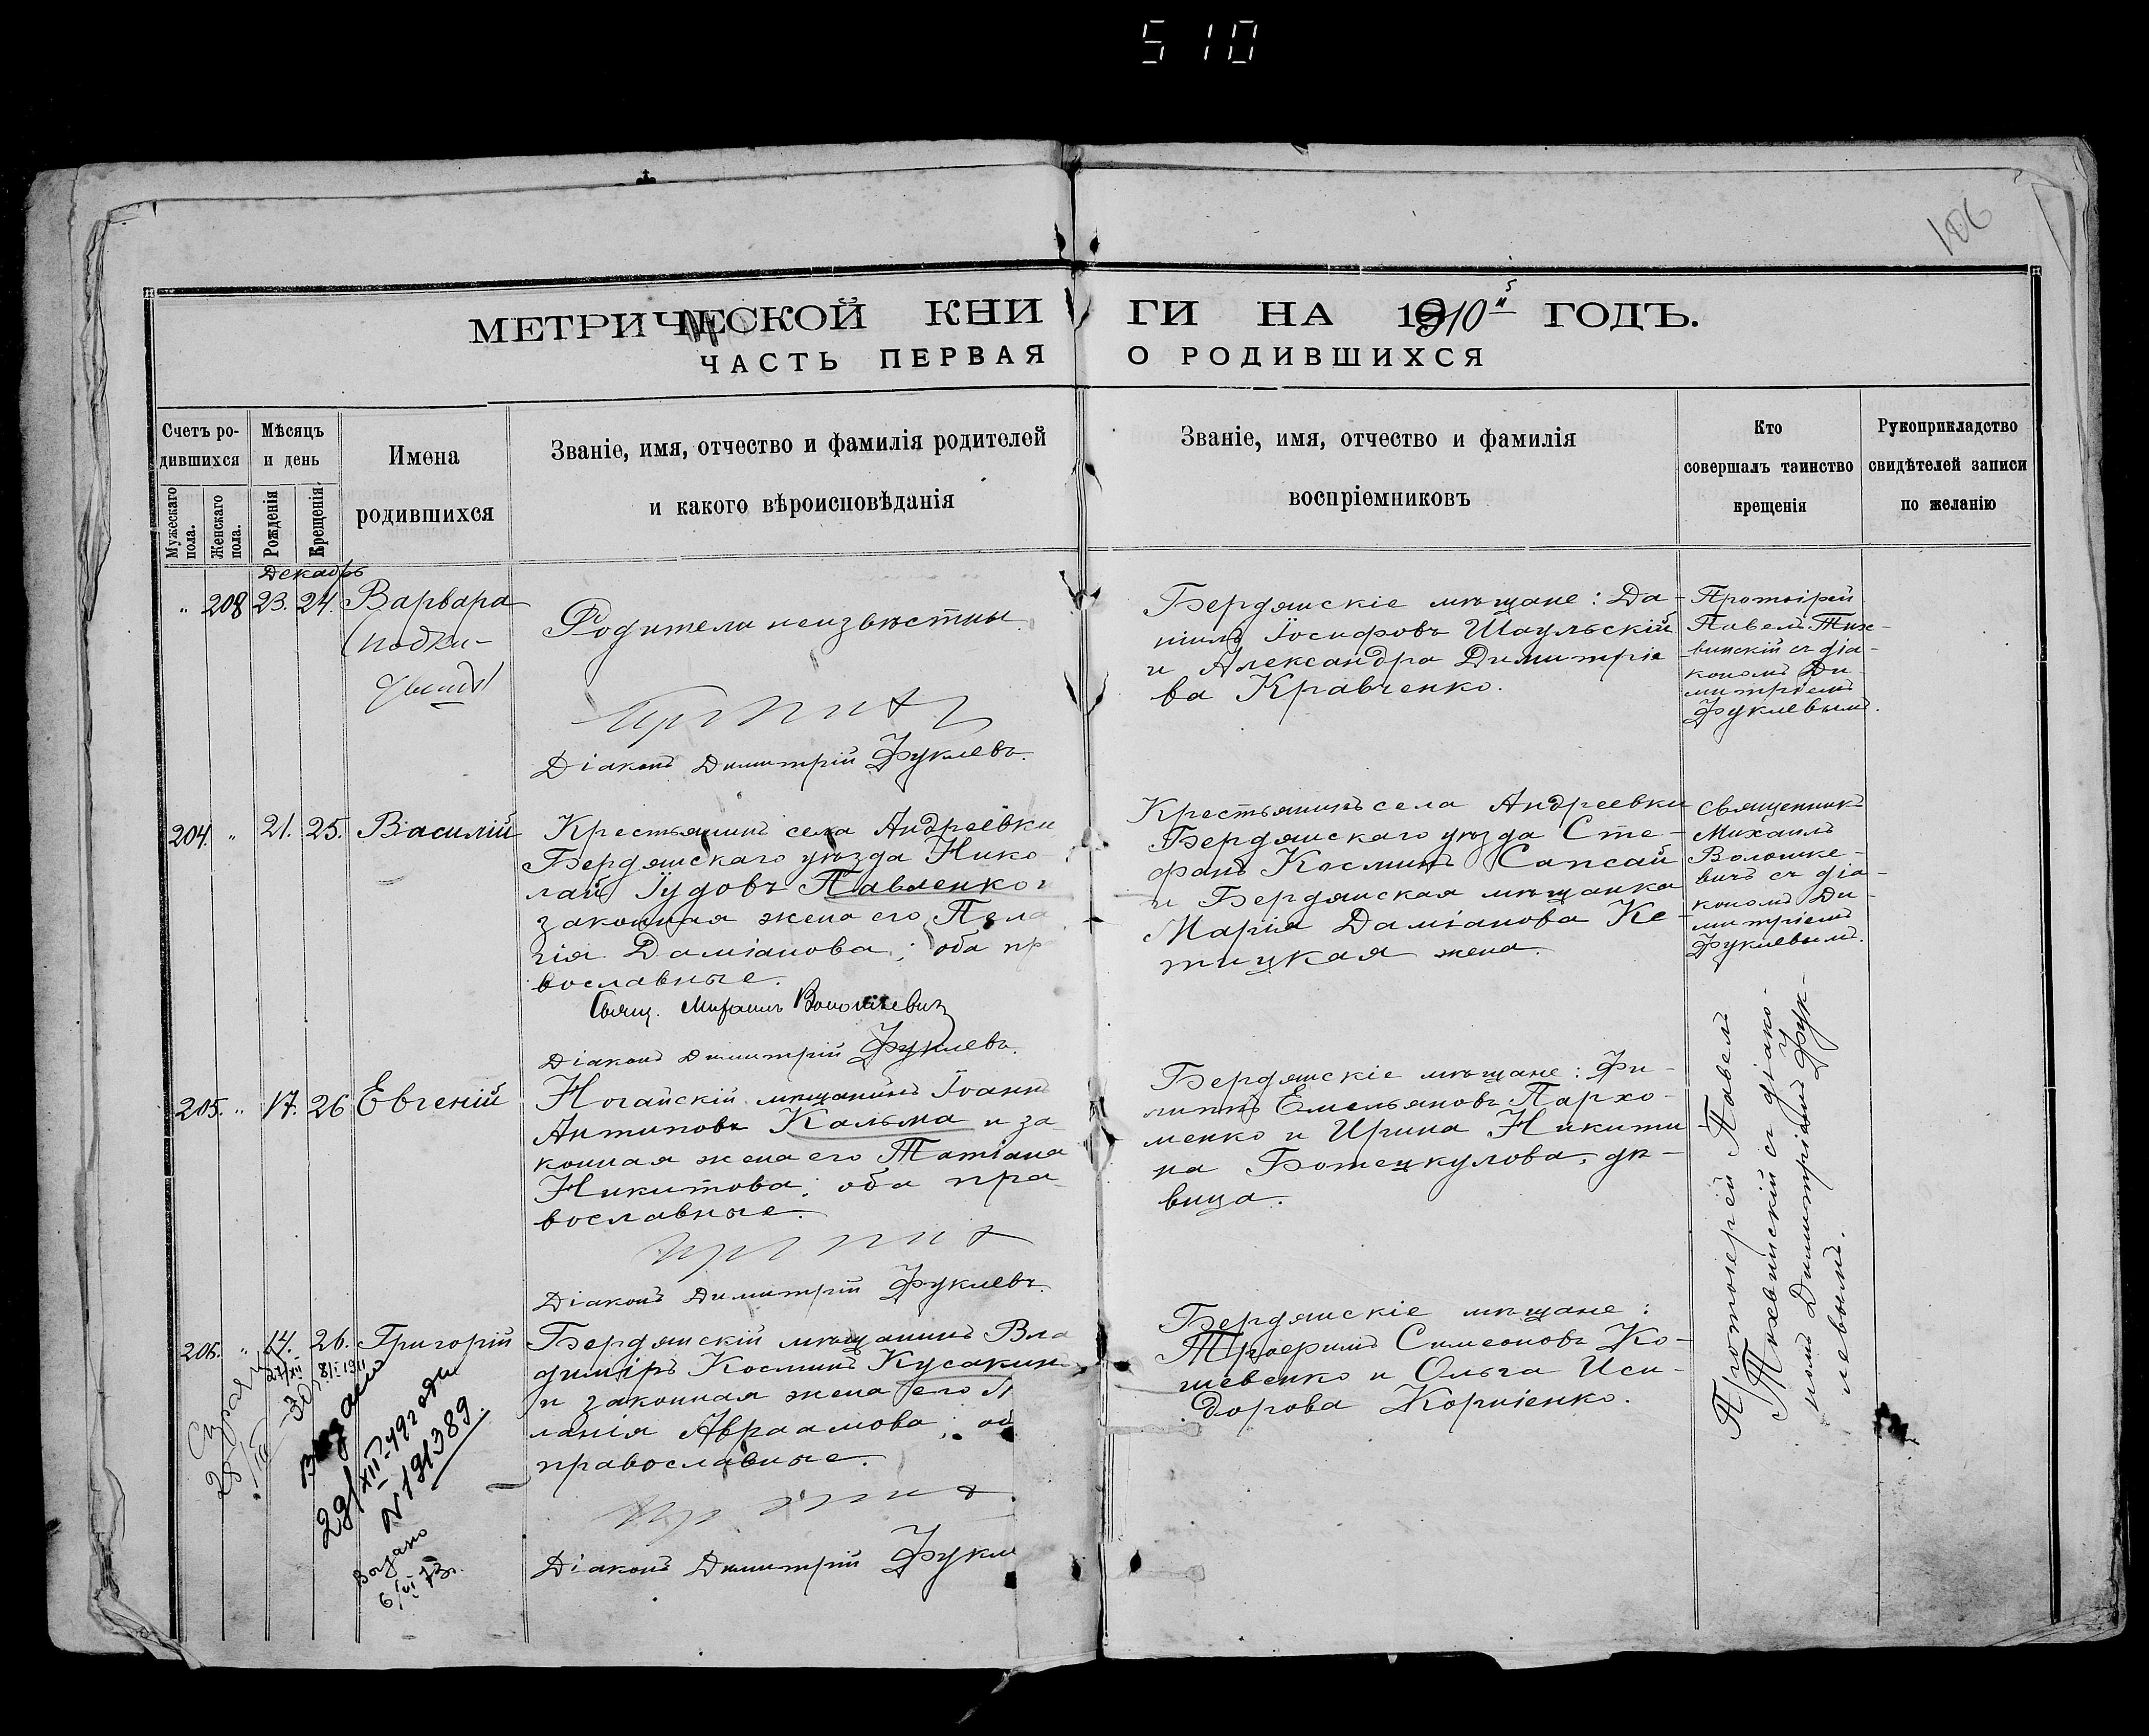 510
106
МЕТРИЧЕСКОЙ КНИГИ НА 1910й ГОДЪ.
ЧАСТЬ ПЕРВАЯ О РОДИВШИХСЯ
Счетъ ро-
дившихся
Мужескаго
пола.
Женскаго
пола.
Мѣсяцъ
и день
Рожденія
Крещенія
Имена
родившихся
Званіе, имя, отчество и фамилія родителей
и какого вѣроисповѣданія
Званіе, имя, отчество и фамилія
воспріемниковъ
Кто
совершалъ таинство
крещенія
Рукоприкладство
свидѣтелей записи
по желанію
Декабрь
" 208 23. 24. Варвара
(подки-
Родители неизвѣстны
Діаконъ Димитрій Фуклевъ.
Бердянскіе мѣщане: Да-
ніилъ Іосифовъ Шаульскій
и Александра Димитріе
ва Кравченко.
Протоіерей
Павелъ Тих-
винскій съ діа-
кономъ Ди-
митріемъ
Фуклевымъ.
204. " 21. 25. Василій
Крестьянинъ села Андреевки
Бердянскаго уѣзда Нико-
лай Іудовъ Павленко и
законная жена его Пела
гія Даміанова; оба пр
вославные.
Свящ. Михаилъ Волошкевичъ
Діаконъ Димитрій Фуклевъ.
Крестьянинъ села Андреевки
Бердянскаго уѣзда Сте-
фанъ Косминъ Сапсай
и Бердянская мѣщанка
Марія Даміанова Ке-
тицкая жена.
Священникъ
Михаилъ
Волошке-
вичъ съ діа-
кономъ Ди-
митріемъ
Фуклевымъ.
205. " 17. 26 Евгеній
Ногайскій мѣщанинъ Іоаннъ
Антиповъ Кальма и за
конная жена его Татіана
Никитова; оба пра-
вославные.
Діаконъ Димитрій Фуклевъ.
Бердянскіе мѣщане: Фи-
липпъ Емельяновъ Пархо-
менко и Ирина Никити
на Ботецкулова, дѣ-
вица.
206. " 14. 26. Григорій
Бердянскій мѣщанинъ Вла
диміръ Косминъ Кусакинъ
и законная жена его М
ланія Авраамова; об
православные.
Діаконъ Димитрій Фукле
Бердянскіе мѣщане:
Симеоновъ Ко-
шевенко и Ольга Иси-
дорова Корніенко.
Протоіерей Павелъ
Тихвинскій съ діако-
номъ Димитріемъ Фук-
левымъ.
27/XII 8/I 1911
28/III-30
Выдано
29/XII-492 года
N 191389.
Выдано
6/VI 73г.